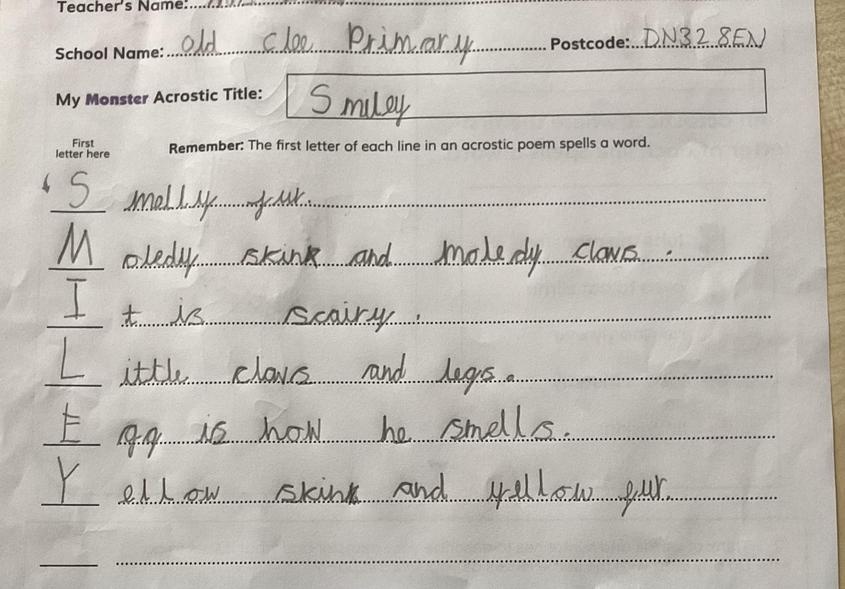 Teacher's Name:
School Name: Old Clee Primary Postcode: DN32 8EN
My Monster Acrostic Title: Smiley
First
letter here
Remember: The first letter of each line in an acrostic poem spells a word.
S melly fur.
M oledy skink and moledy claws.
I t is scairy.
L ittle claws and legs.
E gg is how he smells.
Y ellow skink and yellow fur.